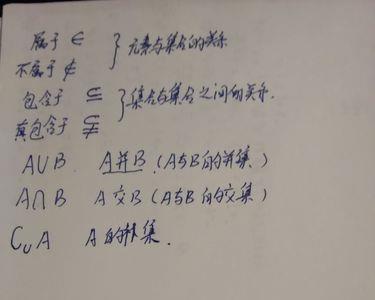 属于 ∈ } 元素与集合的关系
不属于 ∉
包含于 ⊆ } 集合与集合之间的关系.
真包含于 ⫋
A∪B A并B (A与B的并集)
A∩B A交B (A与B的交集)
C∪A A的补集.